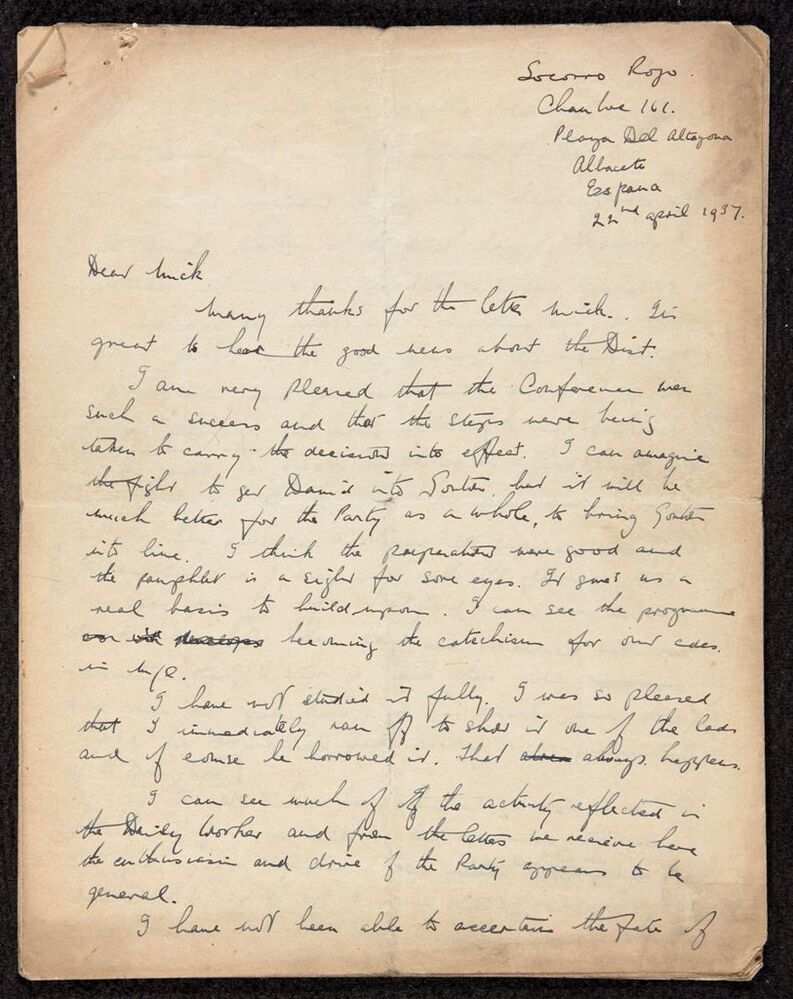 Socorro Rojo.
Chambre 161.
Playa Del Altozona
Albacete
Espana
22nd April 1937.
Dear Mick
Many thanks for the letter Mick. Its
great to hear the good news about the Dist.
I am very pleased that the Conference was
such a success and that the steps were being
taken to carry the decisions into effect. I can imagine
the fight to get David into Gorton, but it will be
much better for the Party as a whole, to bring Gorton
into line. I think the preparations were good and
the pamphlet is a sight for sore eyes. It gives us a
real basis to build upon. I can see the programme
becoming the catechism for our cdes.
in M/C.
I have not studied it fully. I was so pleased
that I immediately ran off to show it one of the lads
and of course he borrowed it. That always happens.
I can see much of the activity reflected in
the Daily Worker and from the letters we receive here
the enthusiasm and drive of the Party appears to be
general.
I have not been able to ascertain the fate of